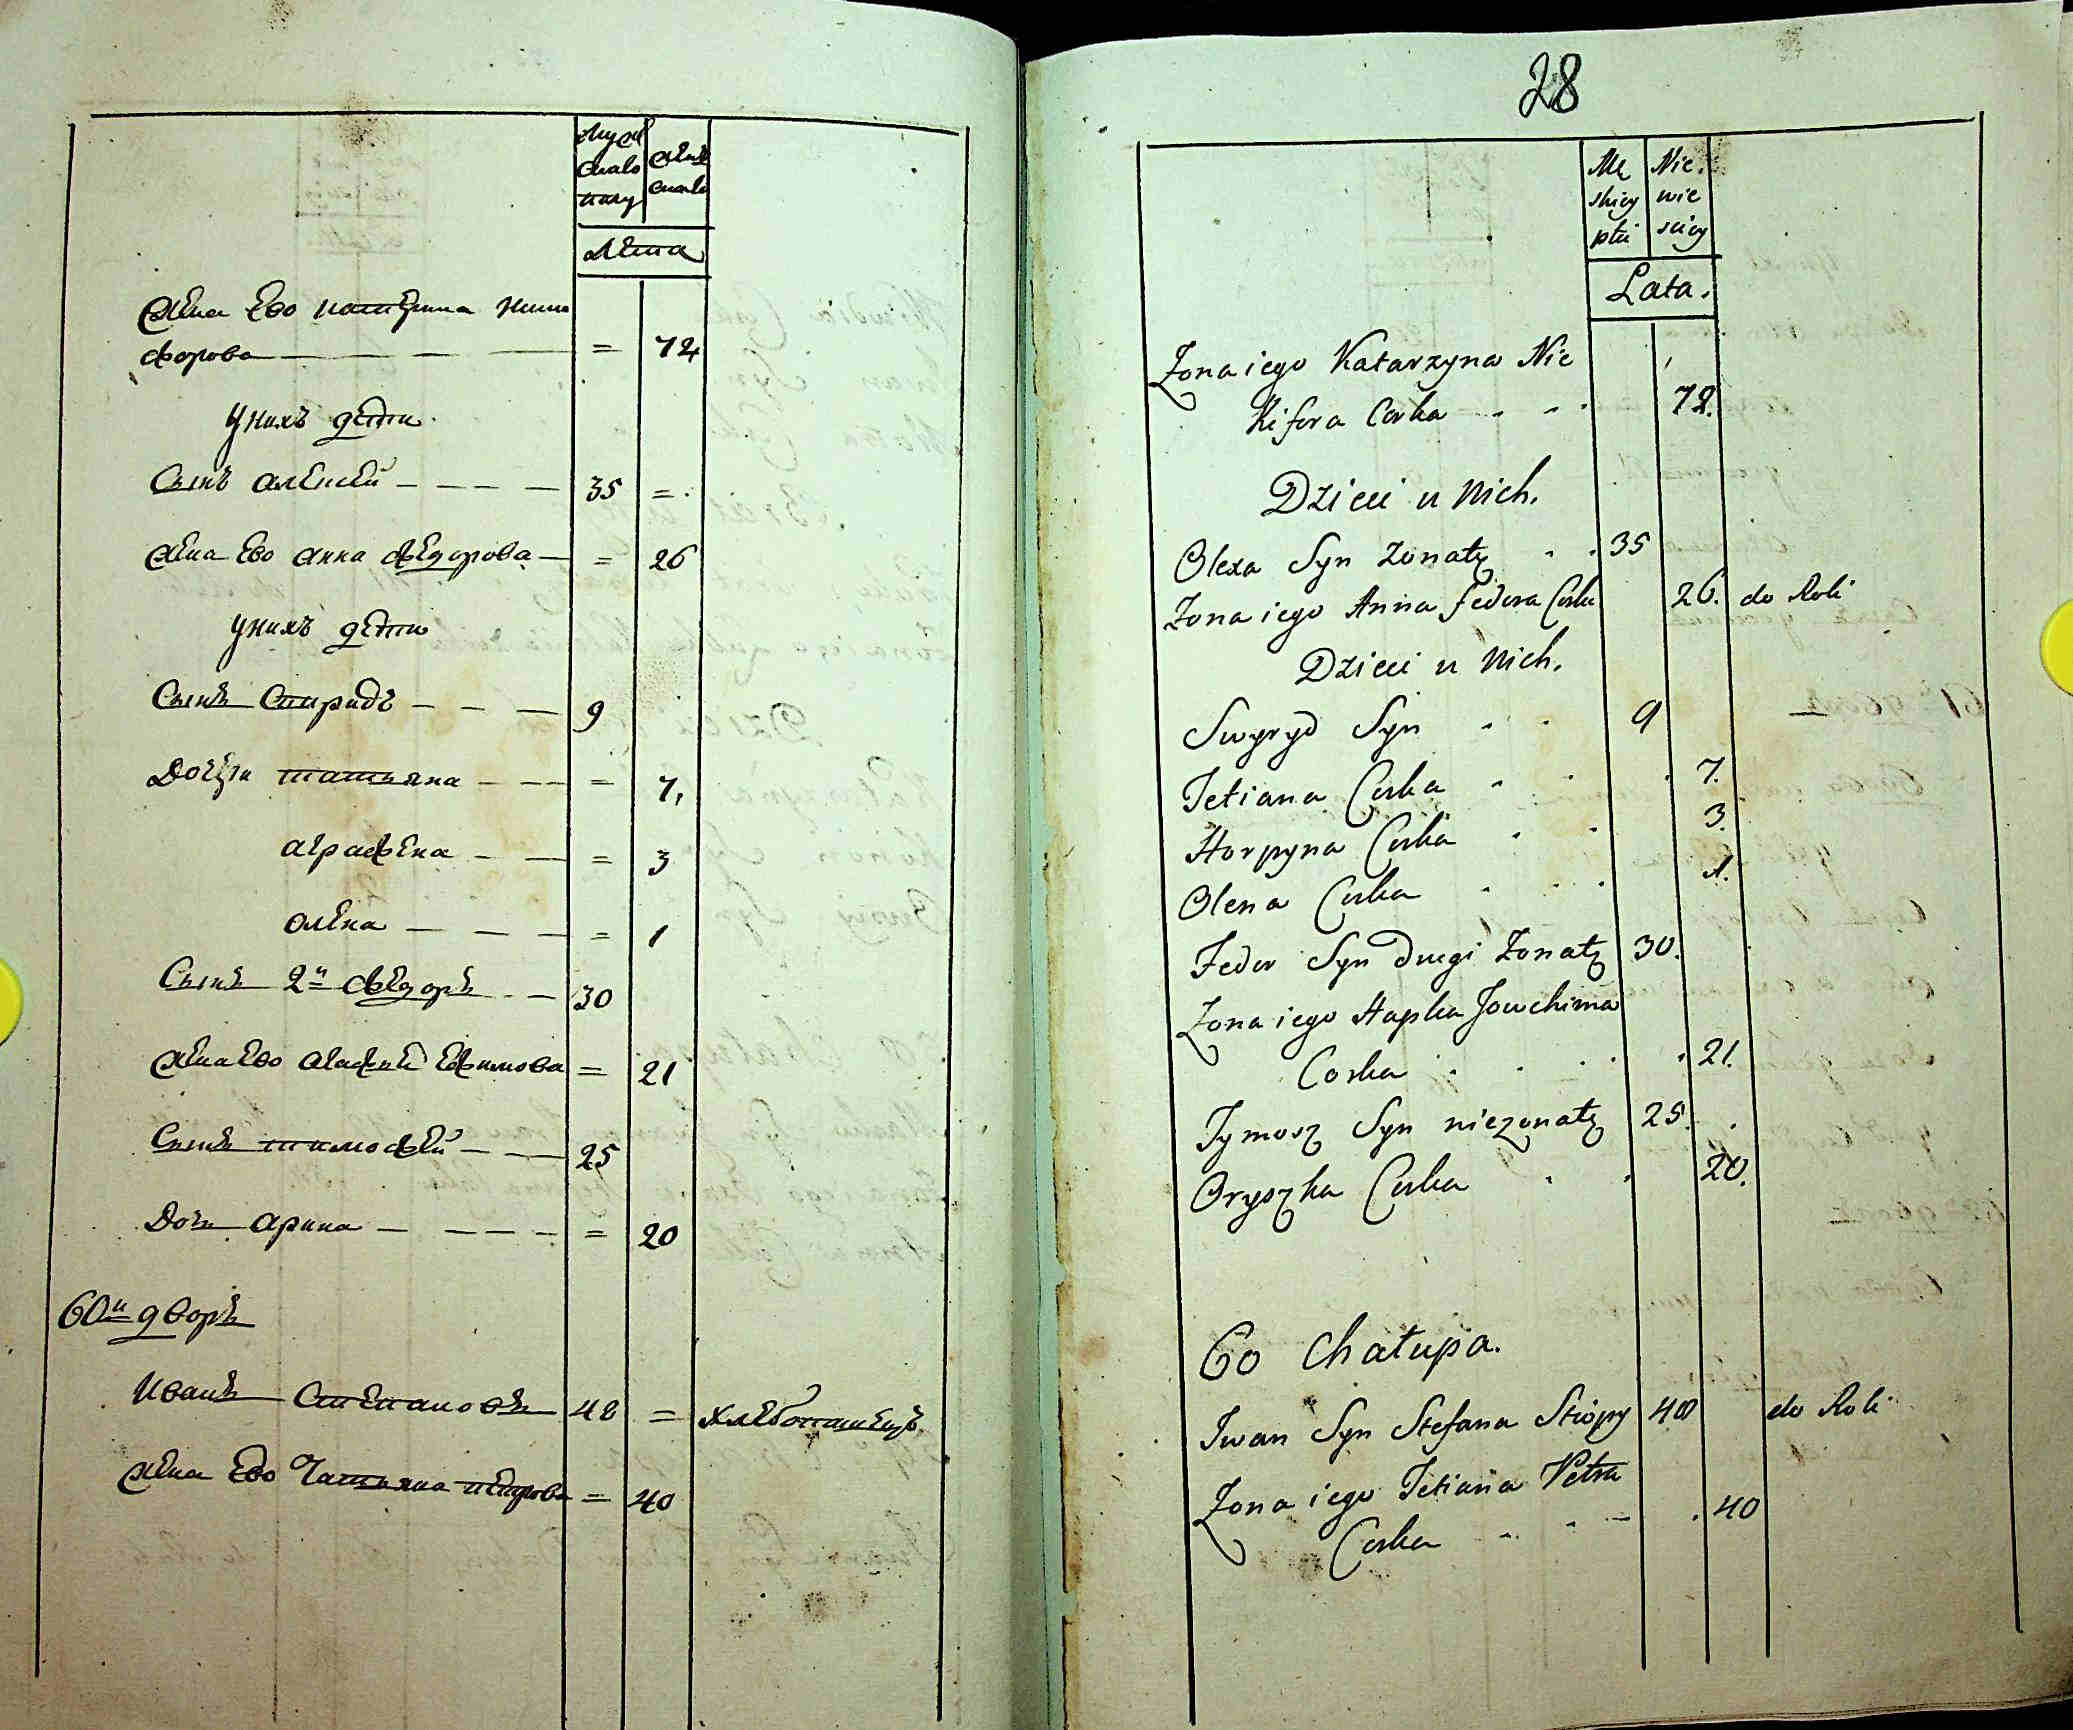 Мужска
полу
Женска
Лета
Жена ево катерина ники
форова — — — — = 72
У нихъ дети
Сынъ алексей — — — — 35 =
Жена ево анна федорова — = 26
У нихъ дети
Сынъ Спиридъ — — — 9
Дочери татьяна — — — = 7
аграфена — — = 3
олена — — — — = 1
Сынъ 2й федоръ — — 30
Жена ево агафия ефимова = 21
Сынъ тимофей — — — 25
Дочь арина — — — — — = 20
60й дворъ
Иванъ Степановъ 48 = хлебопашецъ
Жена ево Татьяна петрова = 40
28
Mę
skiey
płci
Nie
wie
sciey
Lata.
Zona iego Katarzyna Nie
Kifora Corka 72.
Dzieci u Nich.
Olexa Syn Zonaty 35
Zona iego Anna Fedora Corka 26. do Roli
Dzieci u Nich.
Swyryd Syn 9
Tetiana Corka 7.
Horpyna Corka 3.
Olena Corka 1.
Fedor Syn Drugi Zonaty 30.
Zona iego Hapka Jowchima
Corka 21.
Tymosz Syn niezonaty 25.
Oryszka Corka 20.
60 Chałupa.
Iwan Syn Stefana 48 do Roli
Zona iego Tetiana Petra
Corka 40